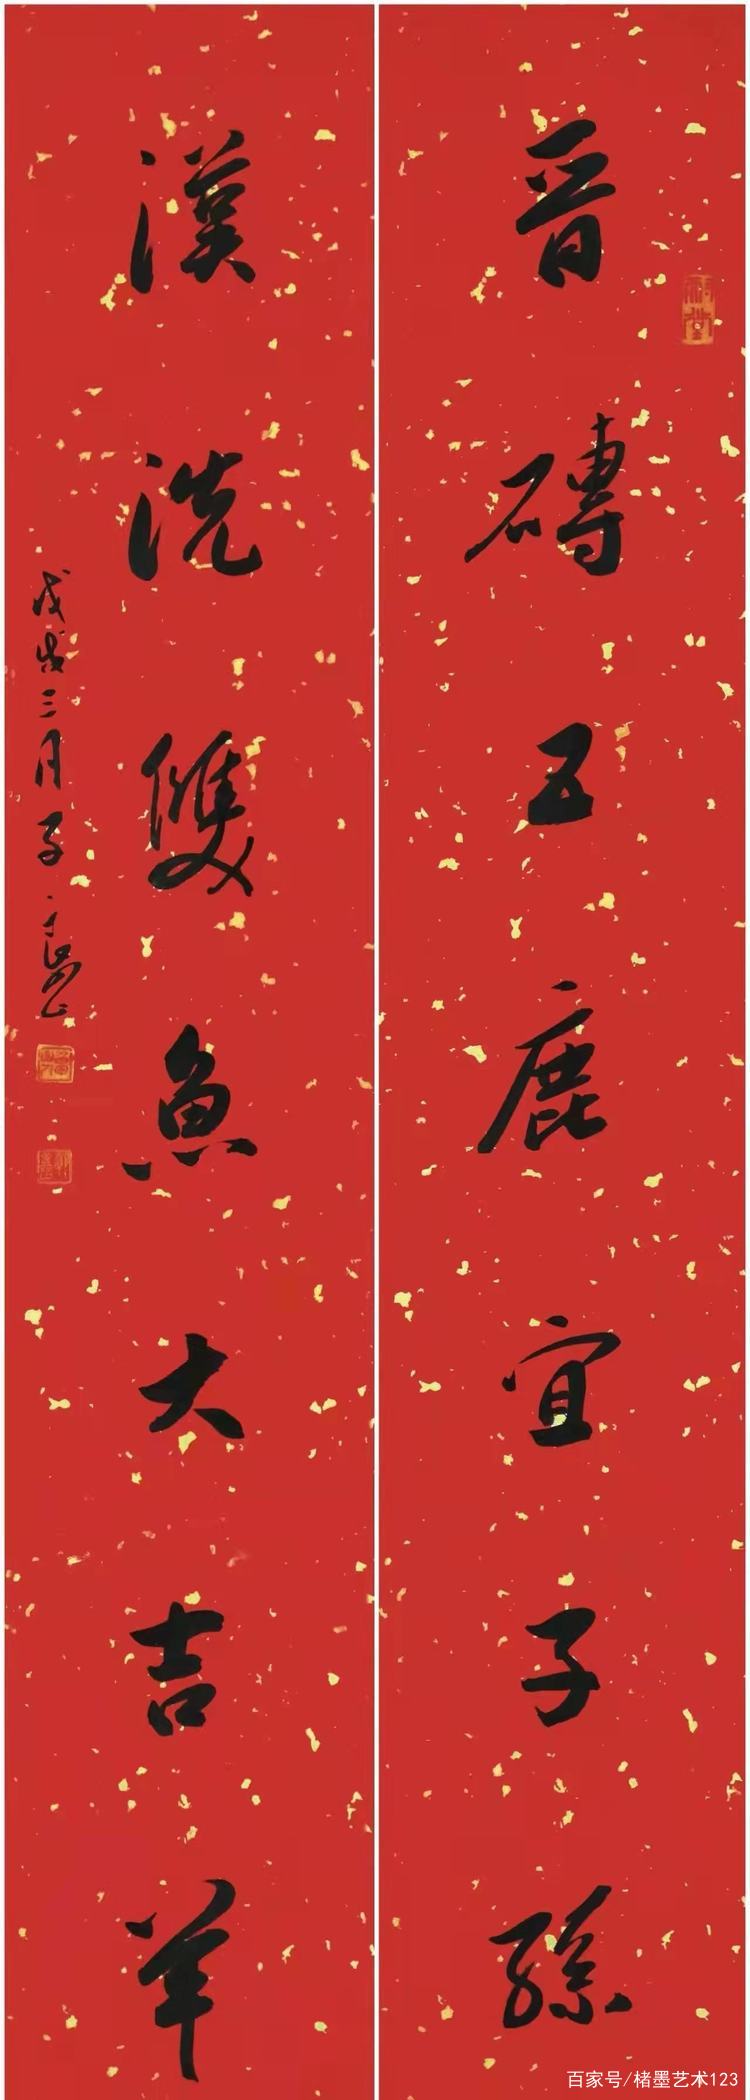 晋磚五鹿宜子孫
漢洗雙魚大吉羊
戊戌三月子
百家号/楮墨艺术123